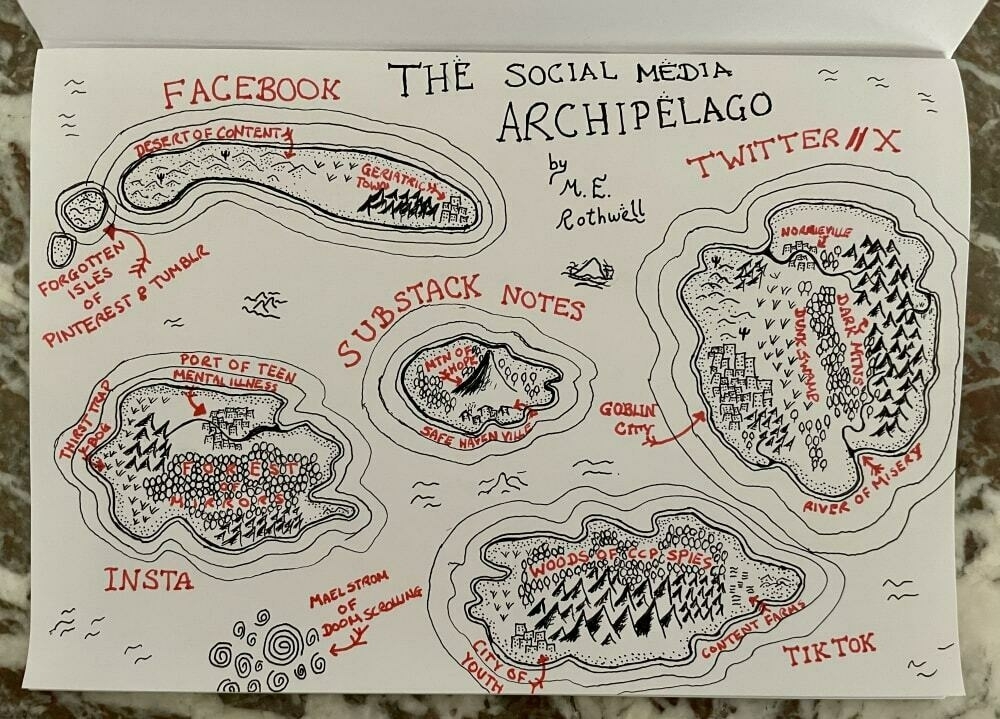 THE SOCIAL MEDIA
ARCHIPELAGO
by
M. E.
Rothwell
FACEBOOK
DESERT OF CONTENT
GERIATRIC
TOWN
FORGOTTEN
ISLES
OF
PINTEREST & TUMBLR
TWITTER // X
NORMIEVILLE
DARK MTNS
DUNK SWAMP
GOBLIN
CITY
RIVER OF MISERY
SUBSTACK NOTES
MTN OF
HOPE
SAFE HAVEN VILLE
PORT OF TEEN
MENTAL ILLNESS
THIRST TRAP
BOG
FOREST
OF
MIRRORS
INSTA
MAELSTROM
OF
DOOMSCROLLING
WOODS OF CCP SPIES
CONTENT FARMS
CITY OF
YOUTH
TIKTOK